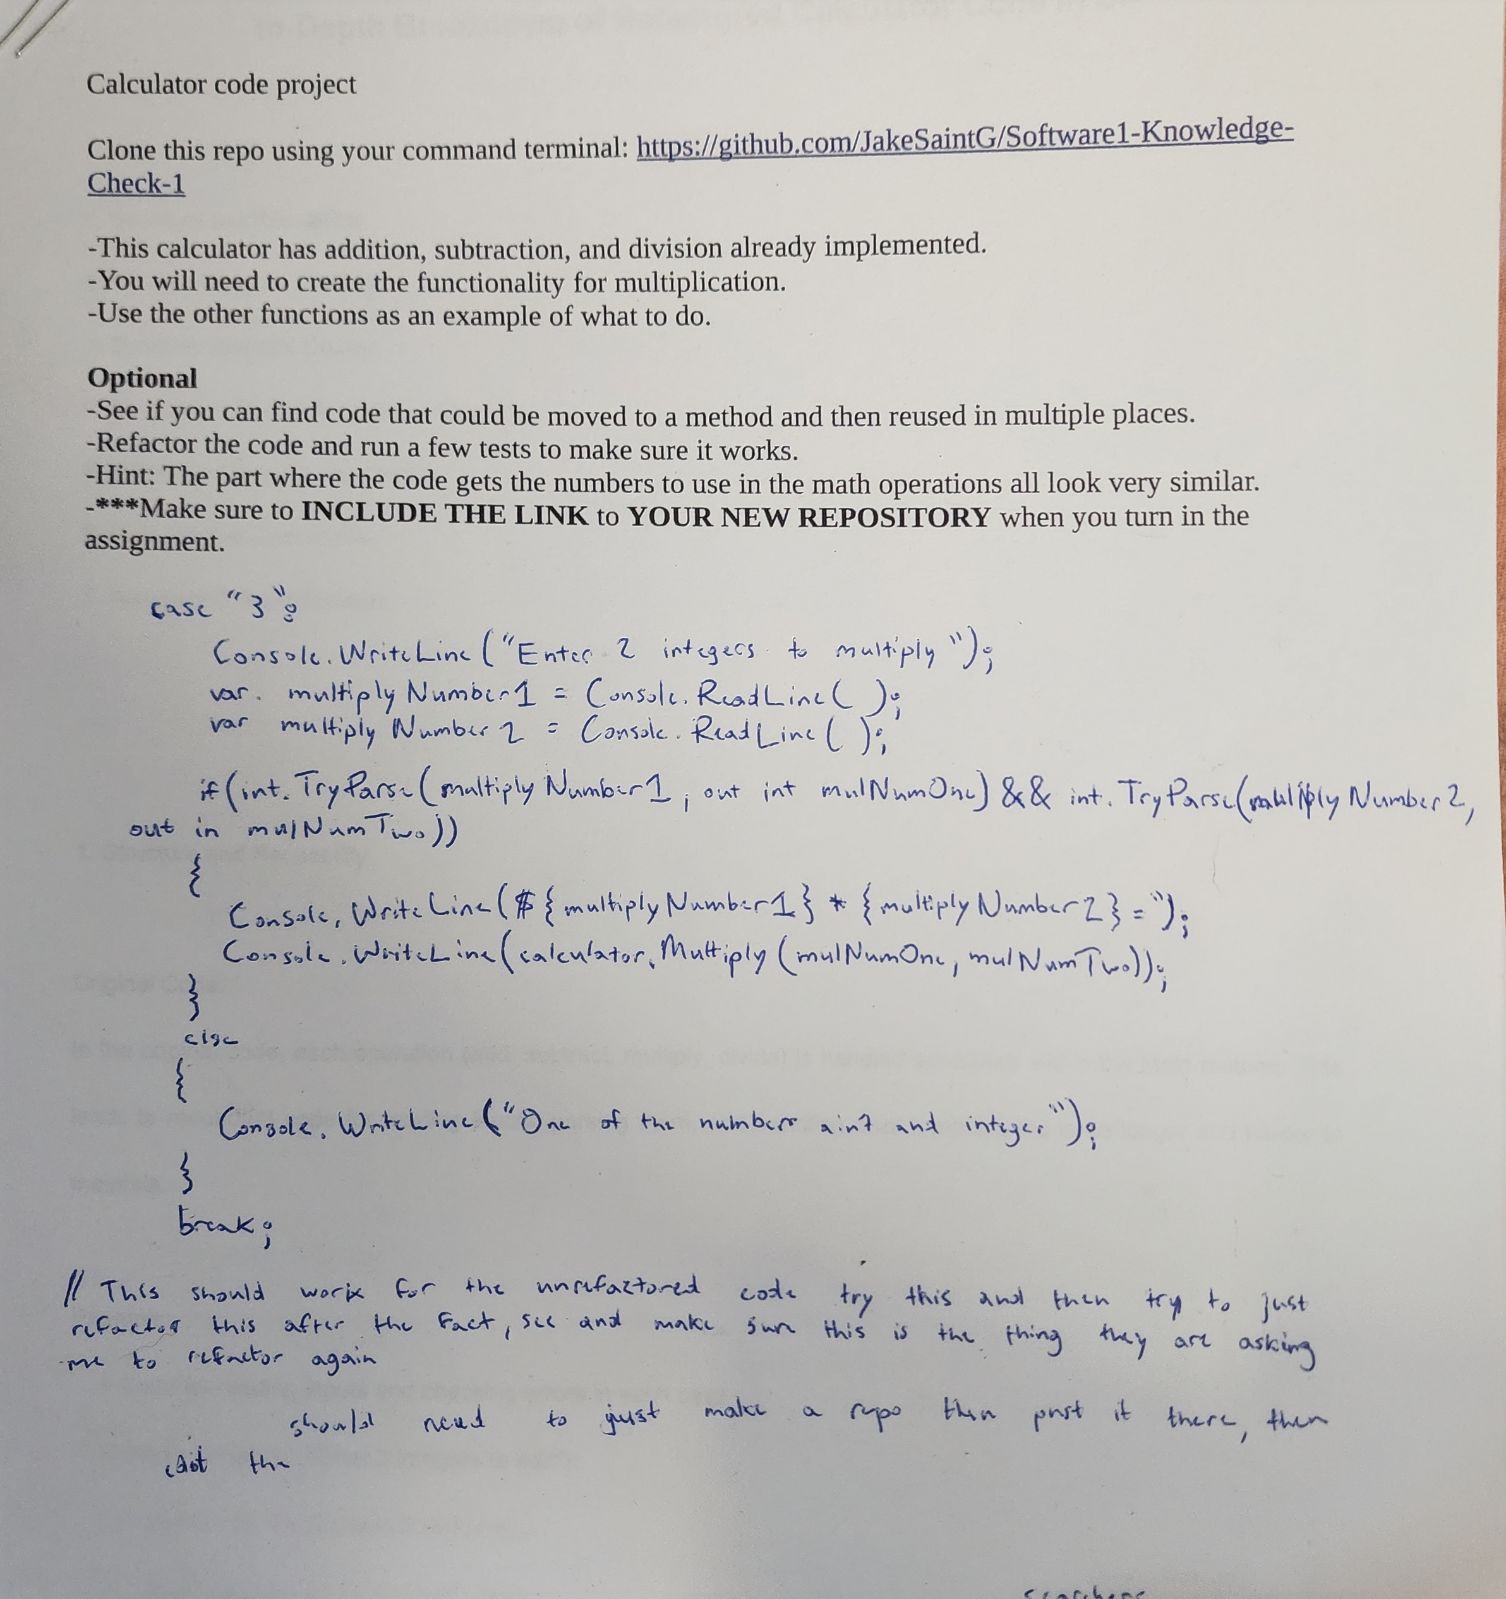 Calculator code project
Clone this repo using your command terminal: https://github.com/JakeSaintG/Software1-Knowledge-
Check-1
-This calculator has addition, subtraction, and division already implemented.
-You will need to create the functionality for multiplication.
-Use the other functions as an example of what to do.
Optional
-See if you can find code that could be moved to a method and then reused in multiple places.
-Refactor the code and run a few tests to make sure it works.
-Hint: The part where the code gets the numbers to use in the math operations all look very similar.
-***Make sure to INCLUDE THE LINK to YOUR NEW REPOSITORY when you turn in the
assignment.
case "3":
Console.WriteLine("Enter 2 integers to multiply");
var. multiplyNumber1 = Console.ReadLine( );
var multiplyNumber2 = Console.ReadLine( );
if(int.TryParse(multiplyNumber1, out int mulNumOne) && int.TryParse(multiplyNumber2,
out in mulNumTwo))
{
Console.WriteLine($ {multiplyNumber1} * {multiplyNumber2} =");
Console.WriteLine(calculator.Multiply(mulNumOne, mulNumTwo));
}
else
{
Console.WriteLine("One of the numbers aint and integer");
}
break;
// This should work for the unrefactored code try this and then try to just
refactor this after the fact, see and make sure this is the thing they are asking
me to refactor again
should need to just make a repo then post it there, then
edit the